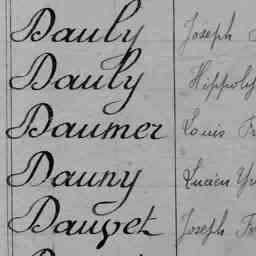 Dauly Joseph
Dauly Hippoly
Daumer Louis Fr
Dauny Lucien Yv
Dauvet Joseph Fr